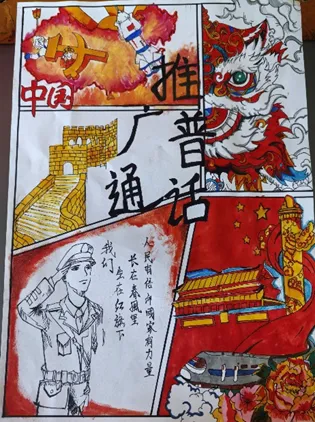 中国
推广普通话
我们
生在红旗下
长在春風里
人民有信仰國家有力量